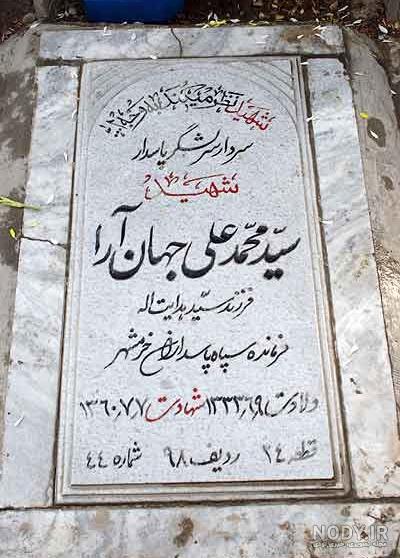 شهید نظر میکند به وجه الله
سردار سرلشگر پاسدار
شهید
سیّد محمّد علی جهان آرا
فرزند سیّد هدایت اله
فرمانده سپاه پاسداران خرمشهر
ولادت ۱۳۳۳٫۶٫۹ شهادت ۱۳۶۰٫۷٫۷
قطعه ۲۴ ردیف ۹۸ شماره ۴۴
NODY.IR